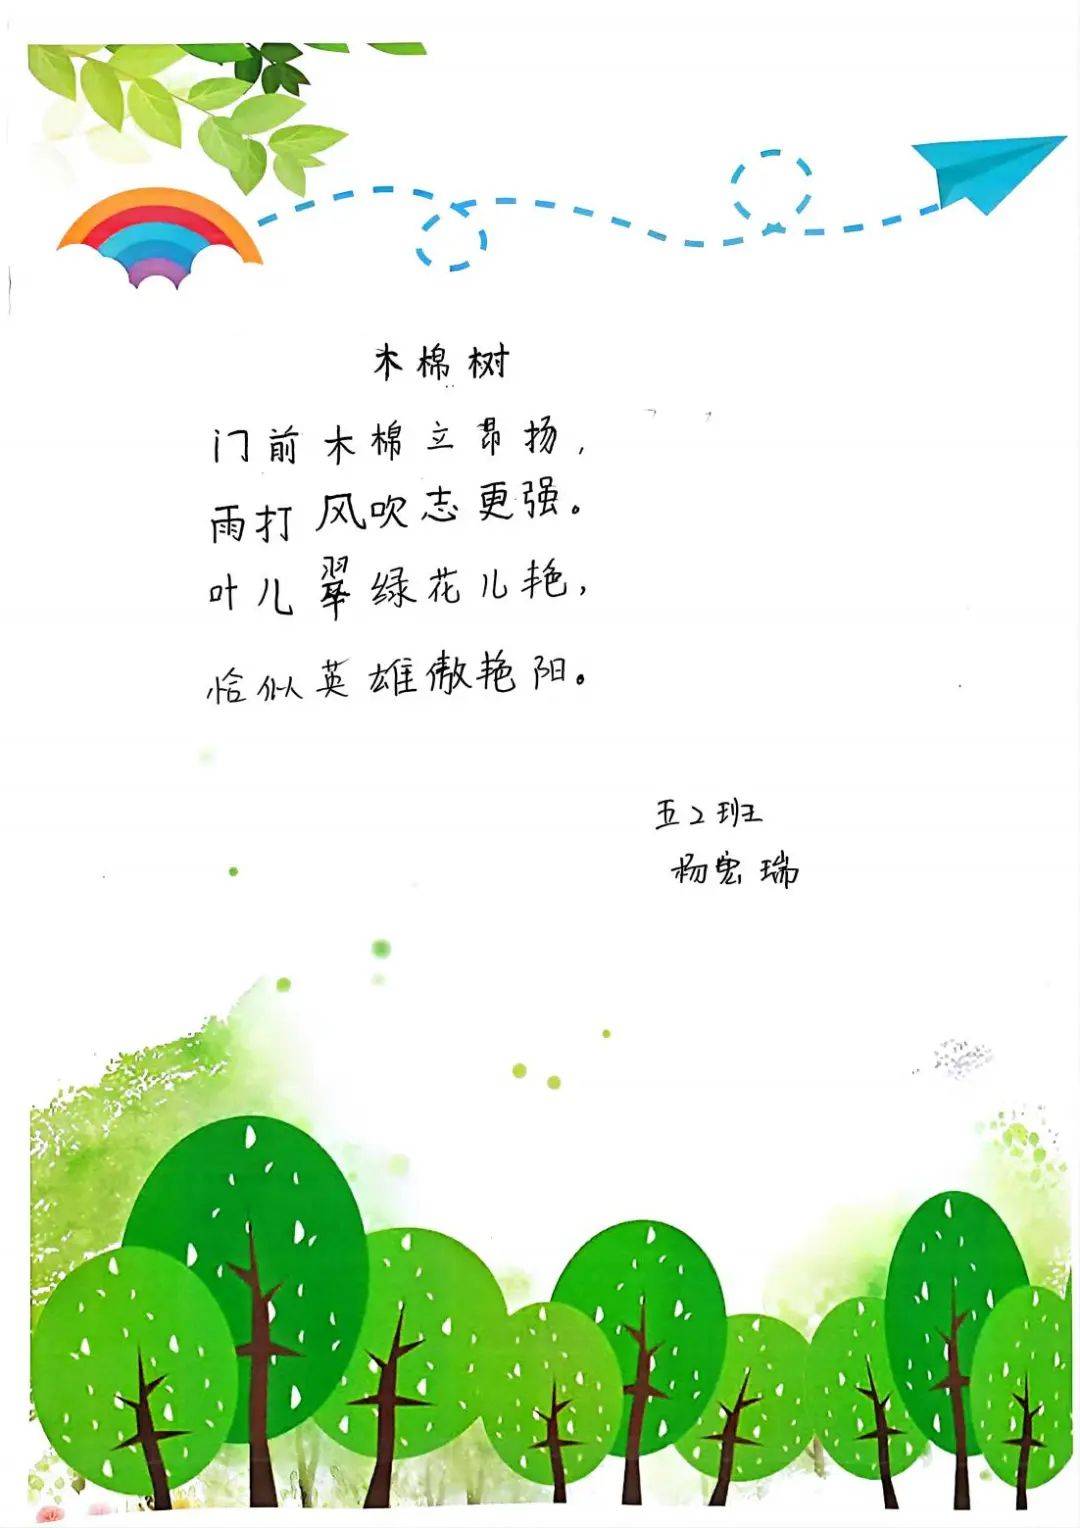 木棉树
门前木棉立昂扬，
雨打风吹志更强。
叶儿翠绿花儿艳，
恰似英雄傲艳阳。
五2班
杨宏瑞